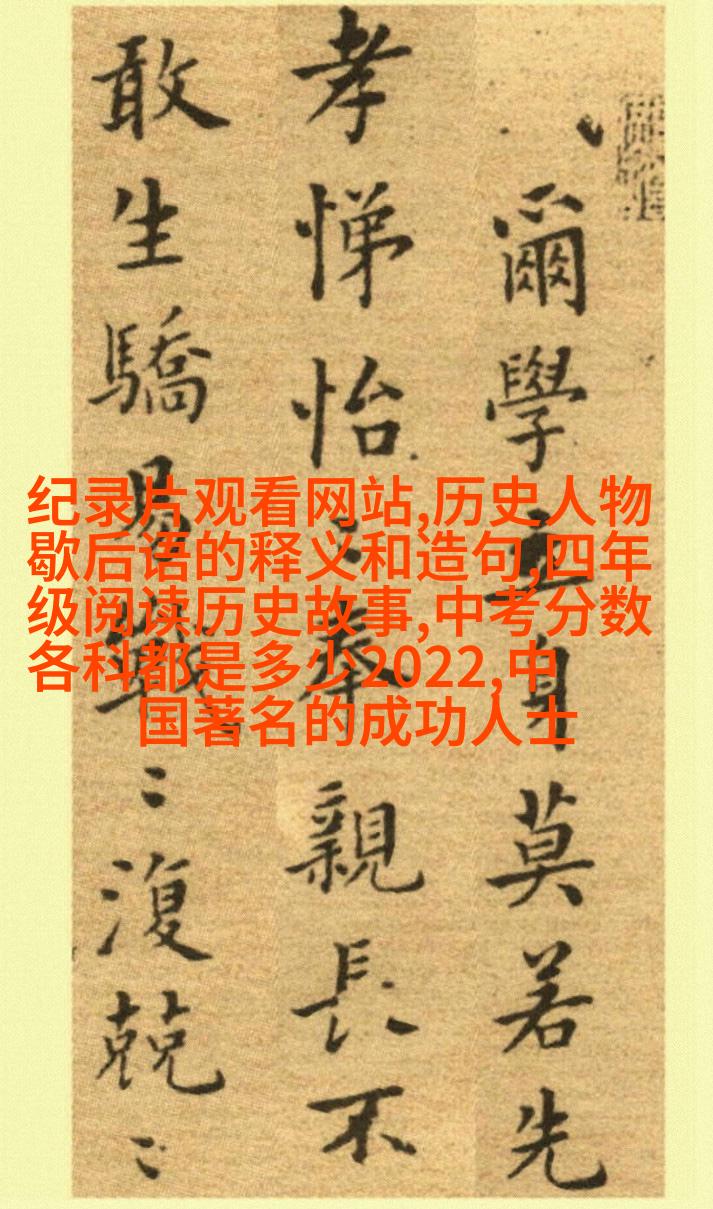 爾學立身莫若先
孝悌怡〻奉親長不
敢生驕易戰〻復兢〻
纪录片观看网站,历史人物
歇后语的释义和造句,四年
级阅读历史故事,中考分数
各科都是多少2022,中
国著名的成功人士